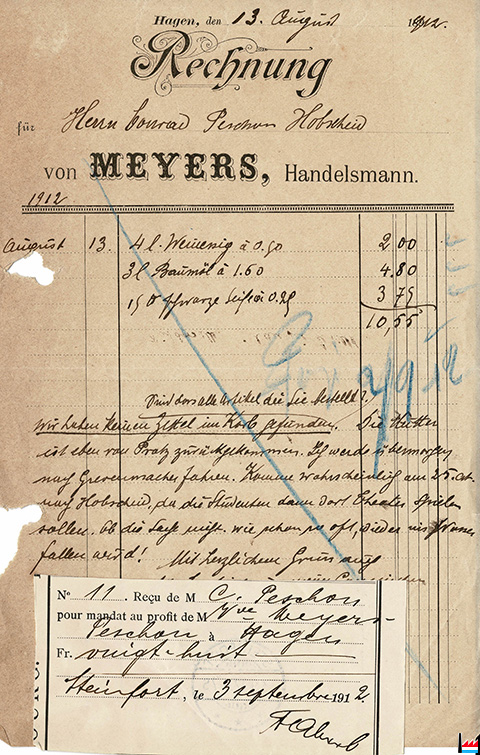 Hagen, den 13. August 1912.
Rechnung
für Herrn Conrad Peschon Hobscheid
von MEYERS, Handelsmann.
1912
August 13. 4 l. Weinessig à 0.50 2 00
3 l Baumöl à 1.60 4.80
15 ℔ schwarze Seife à 0.25 3 75
10,55
Sind das alle Artikel die Sie bestellt?
Wir haben keinen Zettel im Korb gefunden. Die Mutter
ist eben von Pratz zurückgekommen. Ich werde übermorgen
nach Grevenmacher fahren. Komme wahrscheinlich am 25. ct.
nach Hobscheid, da die Studenten dann dort Theater spielen
sollen. Ob die Sache nicht, wie schon so oft, wieder ins Wasser
fallen wird! Mit herzlichem Gruss auch
2/9 12
No 11. Reçu de M C. Peschon
pour mandat au profit de M Vve Meyers-
Peschon à Hagen
Fr. vingt-huit
Steinfort, le 3 septembre 1912.